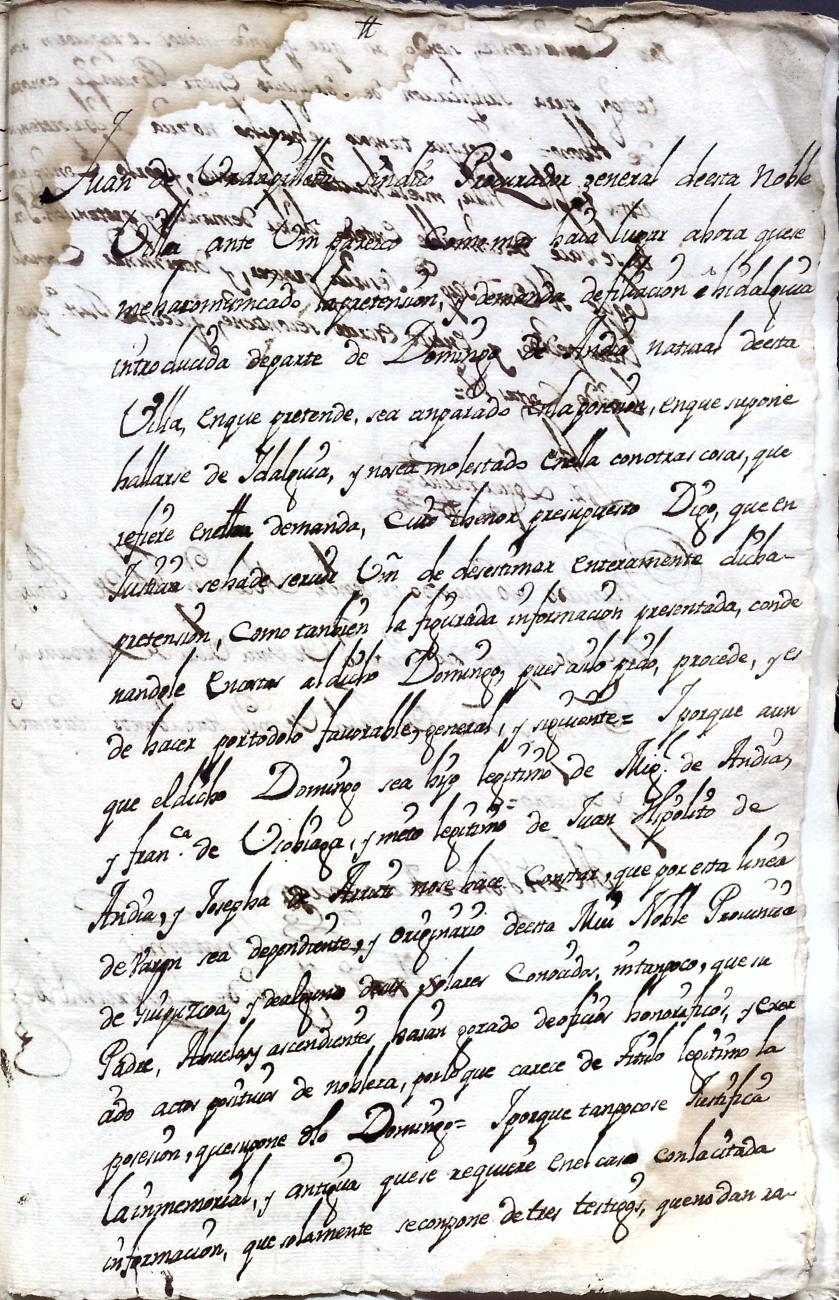 Juan de Vrdangilleta sindico Procurador general deesta Noble
Villa ante Vm parezco Como mas haia lugar ahora quese
mehacomunicado lapretension, y demanda defiliacion e hidalguia
introducida departe de Domingo de Andia natural deesta
Villa, enque pretende, sea anparado enla posesion, enque supone
hallarse de Idalguia, y nosea molestado enella conotras cosas, que
refiere enella demanda, Cuio thenor presupuesto Digo, que en
Justicia sehade servir Vm de desestimar enteramente dicha
pretension, Como tambien la figurada informacion presentada, conde
nandole encostas aldicho Domingo, pues asilo pido, procede, y es
de hacer portodolo favorable, general, y siguiente= Iporque aun
que eldicho Domingo sea hijo legitimo de Mig.l de Andia,
y fran.ca de Vsobiaga, y nieto legitimo de Juan Hipolito de
Andia, y Josepha de nose hace Constar, que por esta linea
de Varon sea dependiente, y originario deesta Mui Noble Provincia
de Guipuzcoa, y dealguno desus solares Conocidos, nitanpoco, que su
Padre, Abuelos, y ascendientes haian gozado deoficios honorificos, y exer
cido actos positivos de nobleza, porloque carece de Titulo legitimo la
posesion, quesupone dho Domingo= Iporque tanpocose Justifica
lainmemorial, y antigua quese requiere enel caso conlacitada
informacion, que solamente secompone detres testigos, quenodan ra-